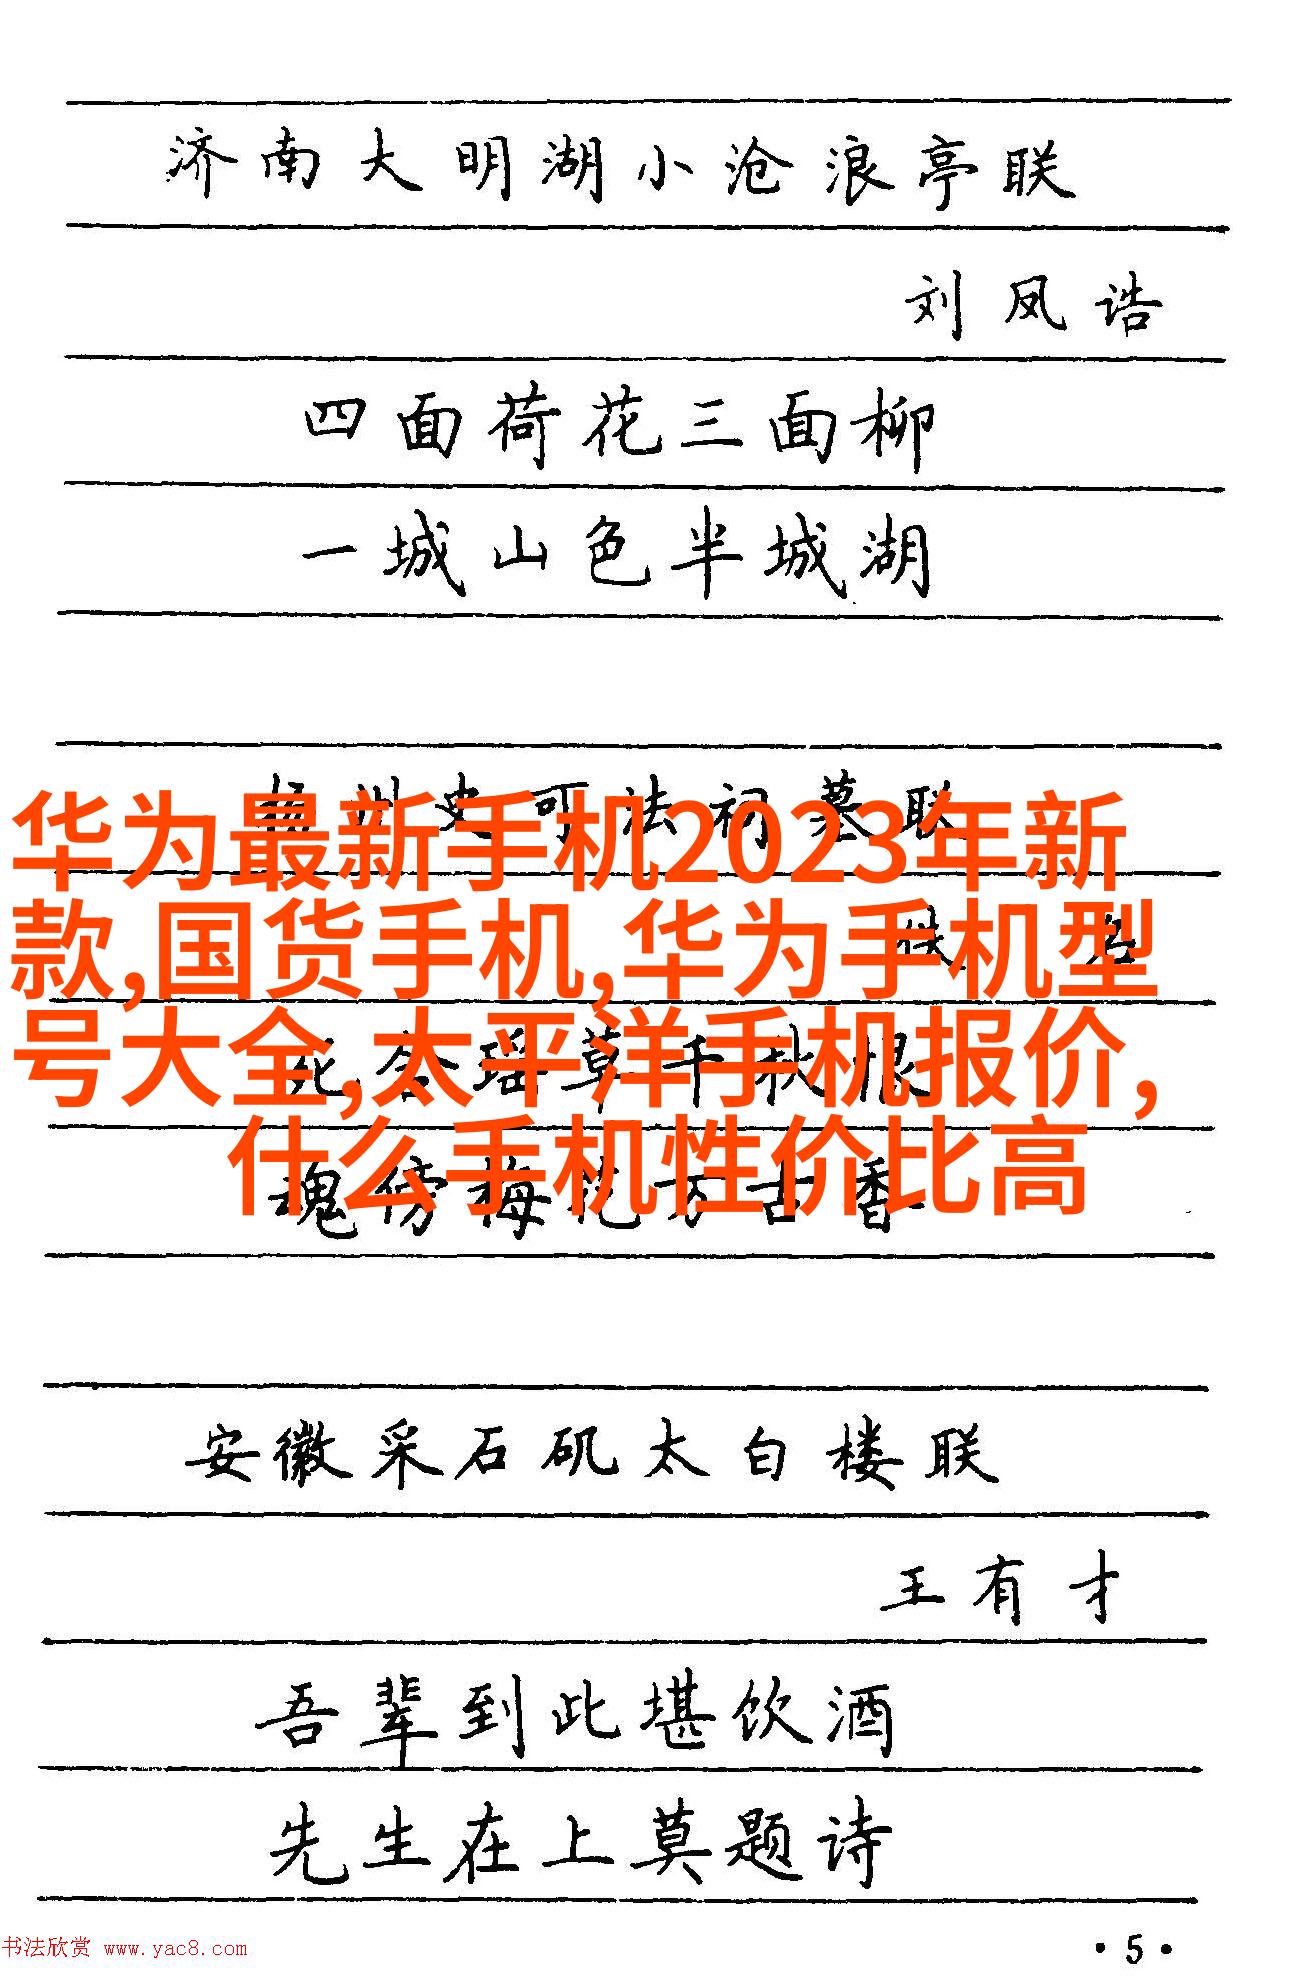 济南大明湖小沧浪亭联
刘凤诰
四面荷花三面柳
一城山色半城湖
扬州史可法祠墓联
佚名
华为最新手机2023年新
款,国货手机,华为手机型
号大全,太平洋手机报价,
什么手机性价比高
死含瑶草千秋恨
魂傍梅花万古香
安徽采石矶太白楼联
王有才
吾辈到此堪饮酒
先生在上莫题诗
书法欣赏 www.yac8.com
·5·